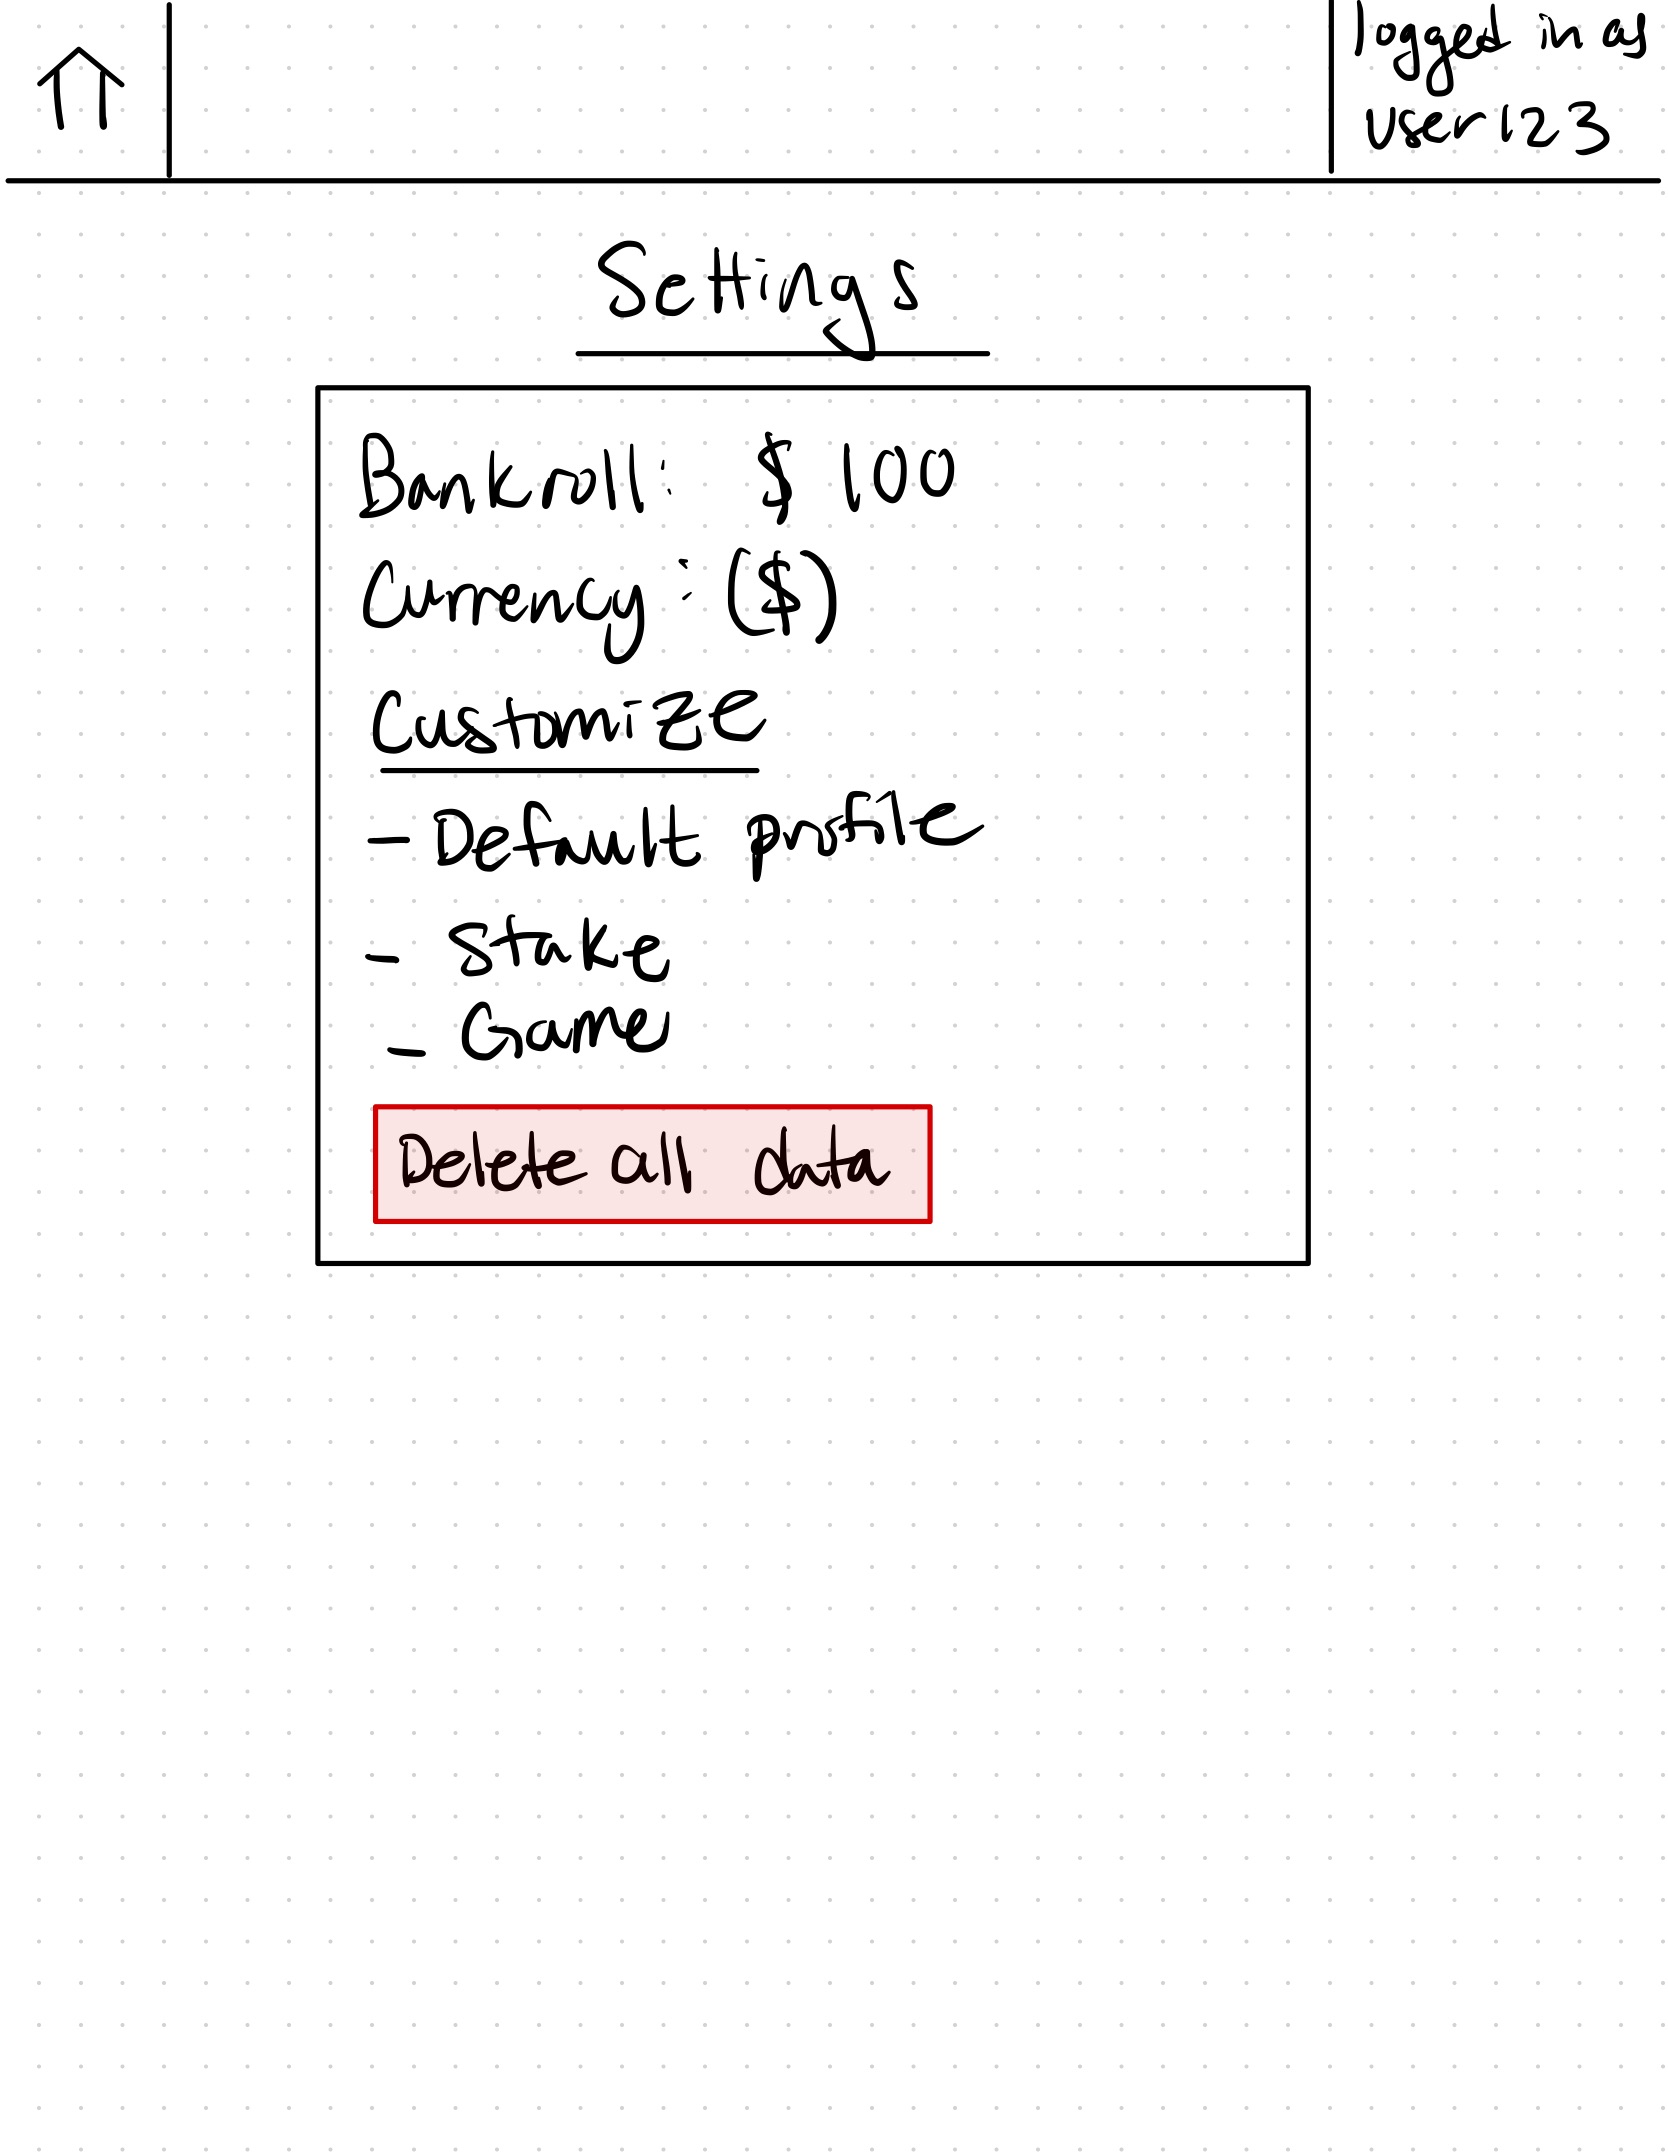 logged in as
user123
Settings
Bankroll: $ 100
Currency: ($)
Customize
- Default profile
- Stake
- Game
Delete all data